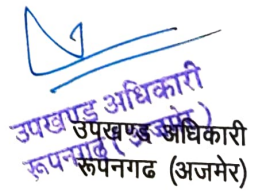 उपखण्ड अधिकारी
रूपनगढ़ (अजमेर)
उपखण्ड अधिकारी
रूपनगढ (अजमेर)